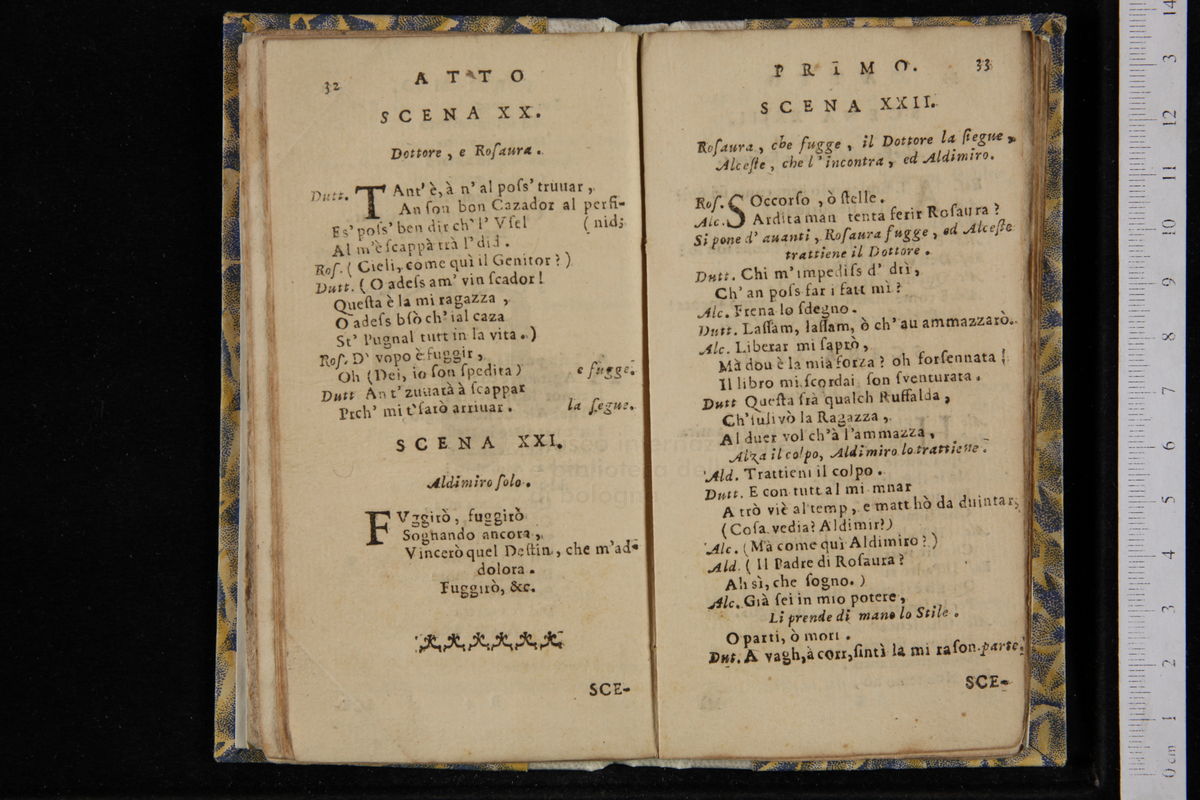 32
ATTO
SCENA XX.
Dottore, e Roſaura.
Dutt. TAnt' è, à n' al poſs' truuar,
An ſon bon Cazador al perfi-
Es' poſs' ben dir ch' l' Vſel (nid;
Al m'è ſcappà trà l' did.
Roſ. (Cieli, come quì il Genitor?)
Dutt. (O adeſs am' vin ſcador!
Queſta è la mi ragazza,
O adeſs bſò ch' ial caza
St' Pugnal tutt in la vita.)
Roſ. D' vopo è fuggir,
Oh (Dei, io ſon ſpedita) e fugge.
Dutt An t' zuuarà à ſcappar
Prch' mi t' ſarò arriuar. la ſegue.
SCENA XXI.
Aldimiro ſolo.
FVggirò, fuggirò
Sognando ancora,
Vincerò quel Deſtin, che m'ad-
dolora.
Fuggirò, &c.
SCE-
PRIMO.
33
SCENA XXII.
Roſaura, che fugge, il Dottore la ſiegue,
Alceſte, che l'incontra, ed Aldimiro.
Roſ. SOccorſo, ò ſtelle.
Alc. Ardita man tenta ferir Roſaura?
Si pone d' auanti, Roſaura fugge, ed Alceſte
trattiene il Dottore.
Dutt. Chi m'impediſs d' drì,
Ch' an poſs far i fatt mì?
Alc. Frena lo ſdegno.
Dutt. Laſſam, laſſam, ò ch' au ammazzarò.
Alc. Liberar mi ſaprò,
Mà dou è la mia forza? oh forſennata!
Il libro mi ſcordai ſon ſventurata.
Dutt Queſta ſrà qualch Ruffalda,
Ch' ſulivò la Ragazza,
Al duer vol ch'à l'ammazza,
Alza il colpo, Aldimiro lo trattiene.
Ald. Trattieni il colpo.
Dutt. E con tutt al mi mnar
A trò viè al temp, e matt hò da duintar,
(Coſa vedia? Aldimir?)
Alc. (Mà come quì Aldimiro?)
Ald. (Il Padre di Roſaura?
Ah sì, che ſogno.)
Alc. Già ſei in mio potere,
Li prende di mano lo Stile.
O parti, ò mori.
Dut. A vagh, à corr, ſintì la mi raſon. parte.
SCE-